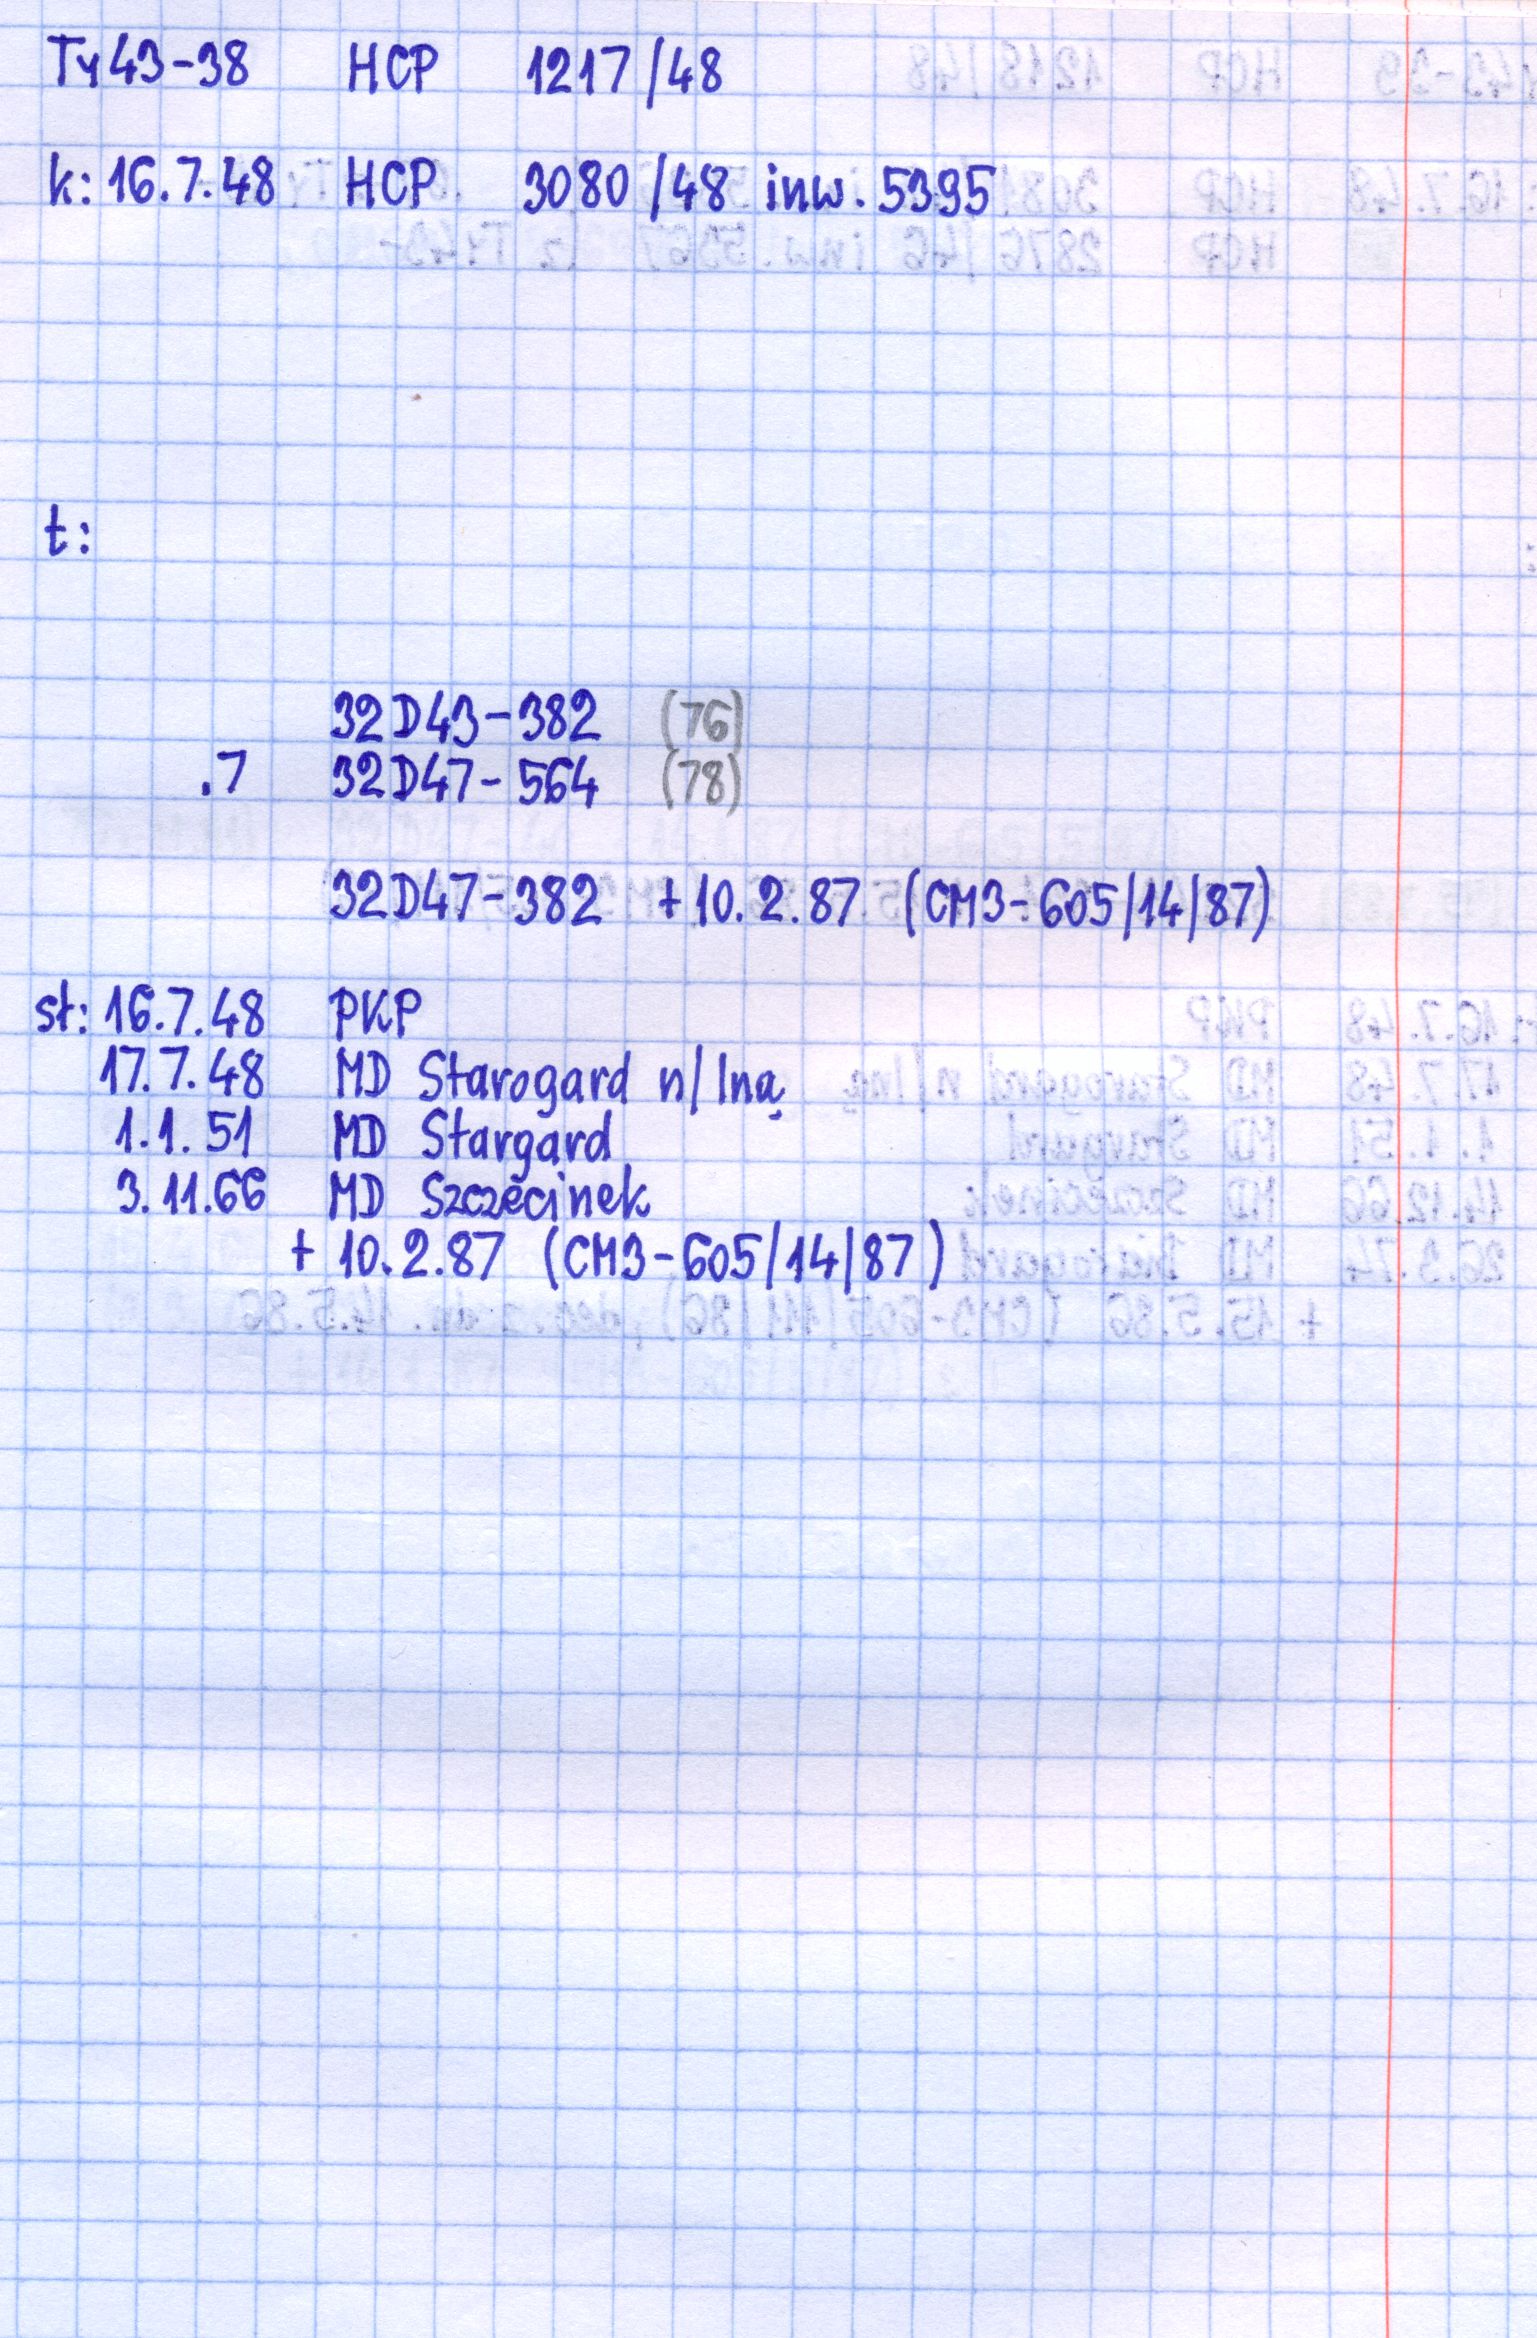 Ty43-38 HCP 1217/48
k: 16.7.48 HCP 3080/48 inw. 5395
t:
32D43-382 (76)
.7 32D47-564 (78)
32D47-382 + 10.2.87 (CM3-605/14/87)
st: 16.7.48 PKP
17.7.48 MD Starogard n/Iną
1.1.51 MD Stargard
3.11.66 MD Szczecinek
+ 10.2.87 (CM3-605/14/87)